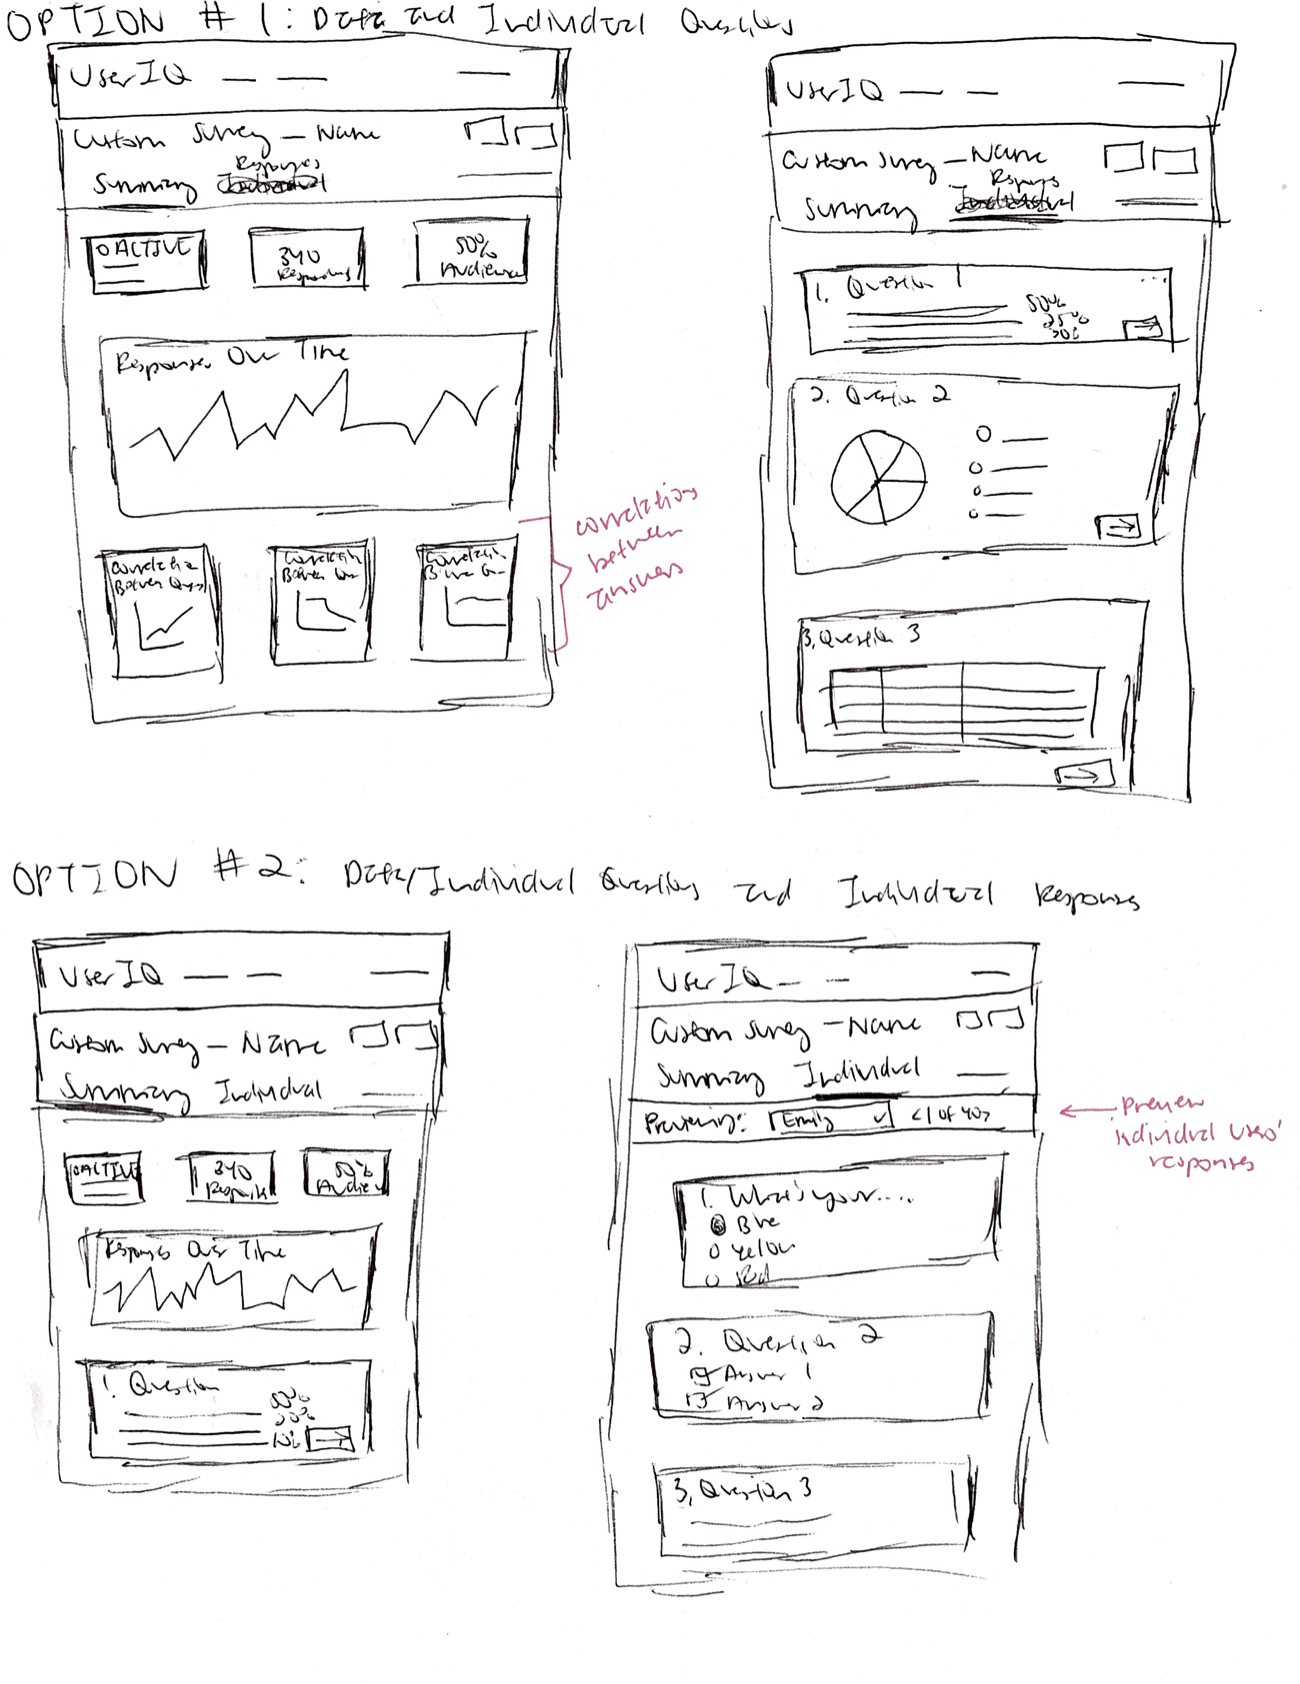 OPTION # 1: Data and Individual Questions
UserIQ
Custom Survey - Name
Responses
Summary Individual
O ACTIVE
340
Responses
50%
Audience
Responses Over Time
Correlation
Between Ques
Correlation
Between Qu
Correlation
correlations
between
answers
UserIQ
Custom Survey - Name
Responses
Summary Individual
1. Question 1
...
50%
25%
2. Question 2
3. Question 3
OPTION #2: Data/Individual Questions and Individual Responses
UserIQ
Custom Survey - Name
Summary Individual
O ACTIVE
340
50%
Responses Over Time
1. Question
10%
UserIQ
Custom Survey - Name
Summary Individual
Previewing: Emily < 1 of 40 >
Preview
individual users'
responses
1. What's your....
Blue
Yellow
Red
2. Question 2
Answer 1
Answer 2
3. Question 3